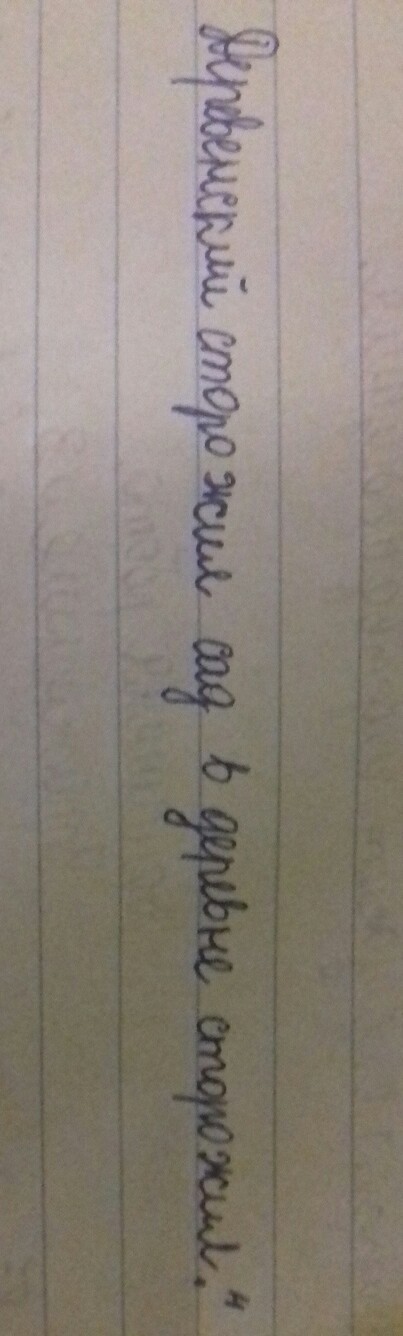 Деревенский сторожил сад в деревне сторожил."